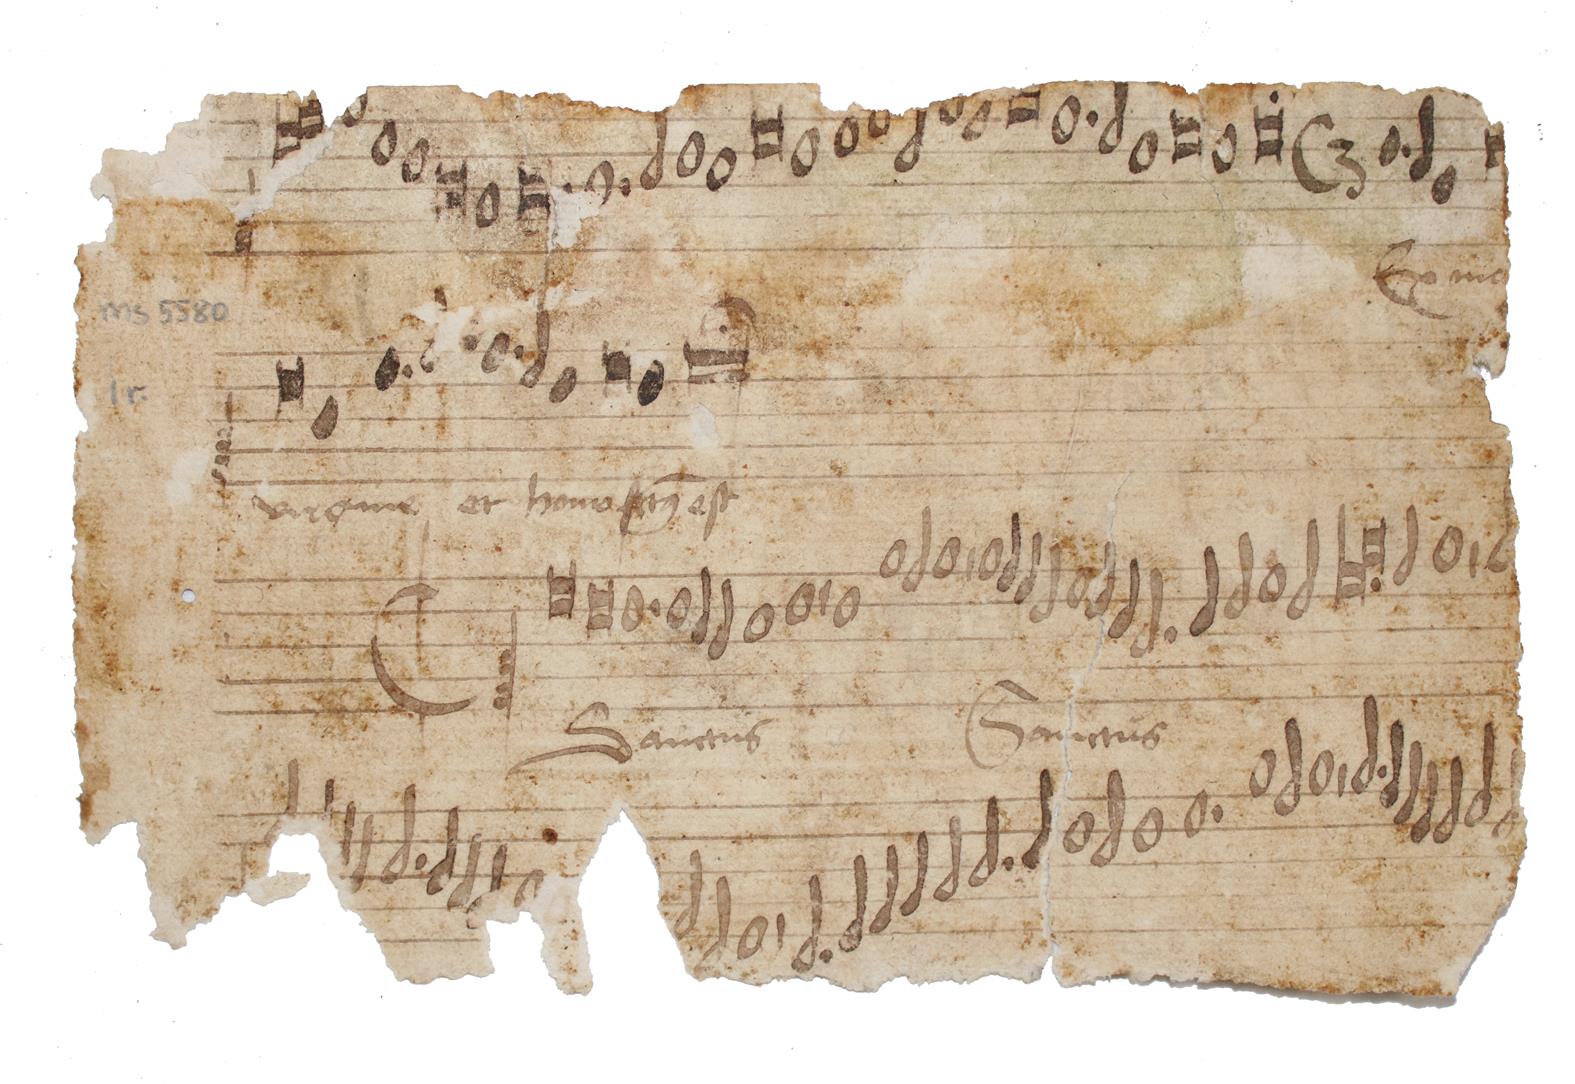 Ex ma
ms 5580
1r.
virgine et homo fctꝰ est
Sanctus Sanctus